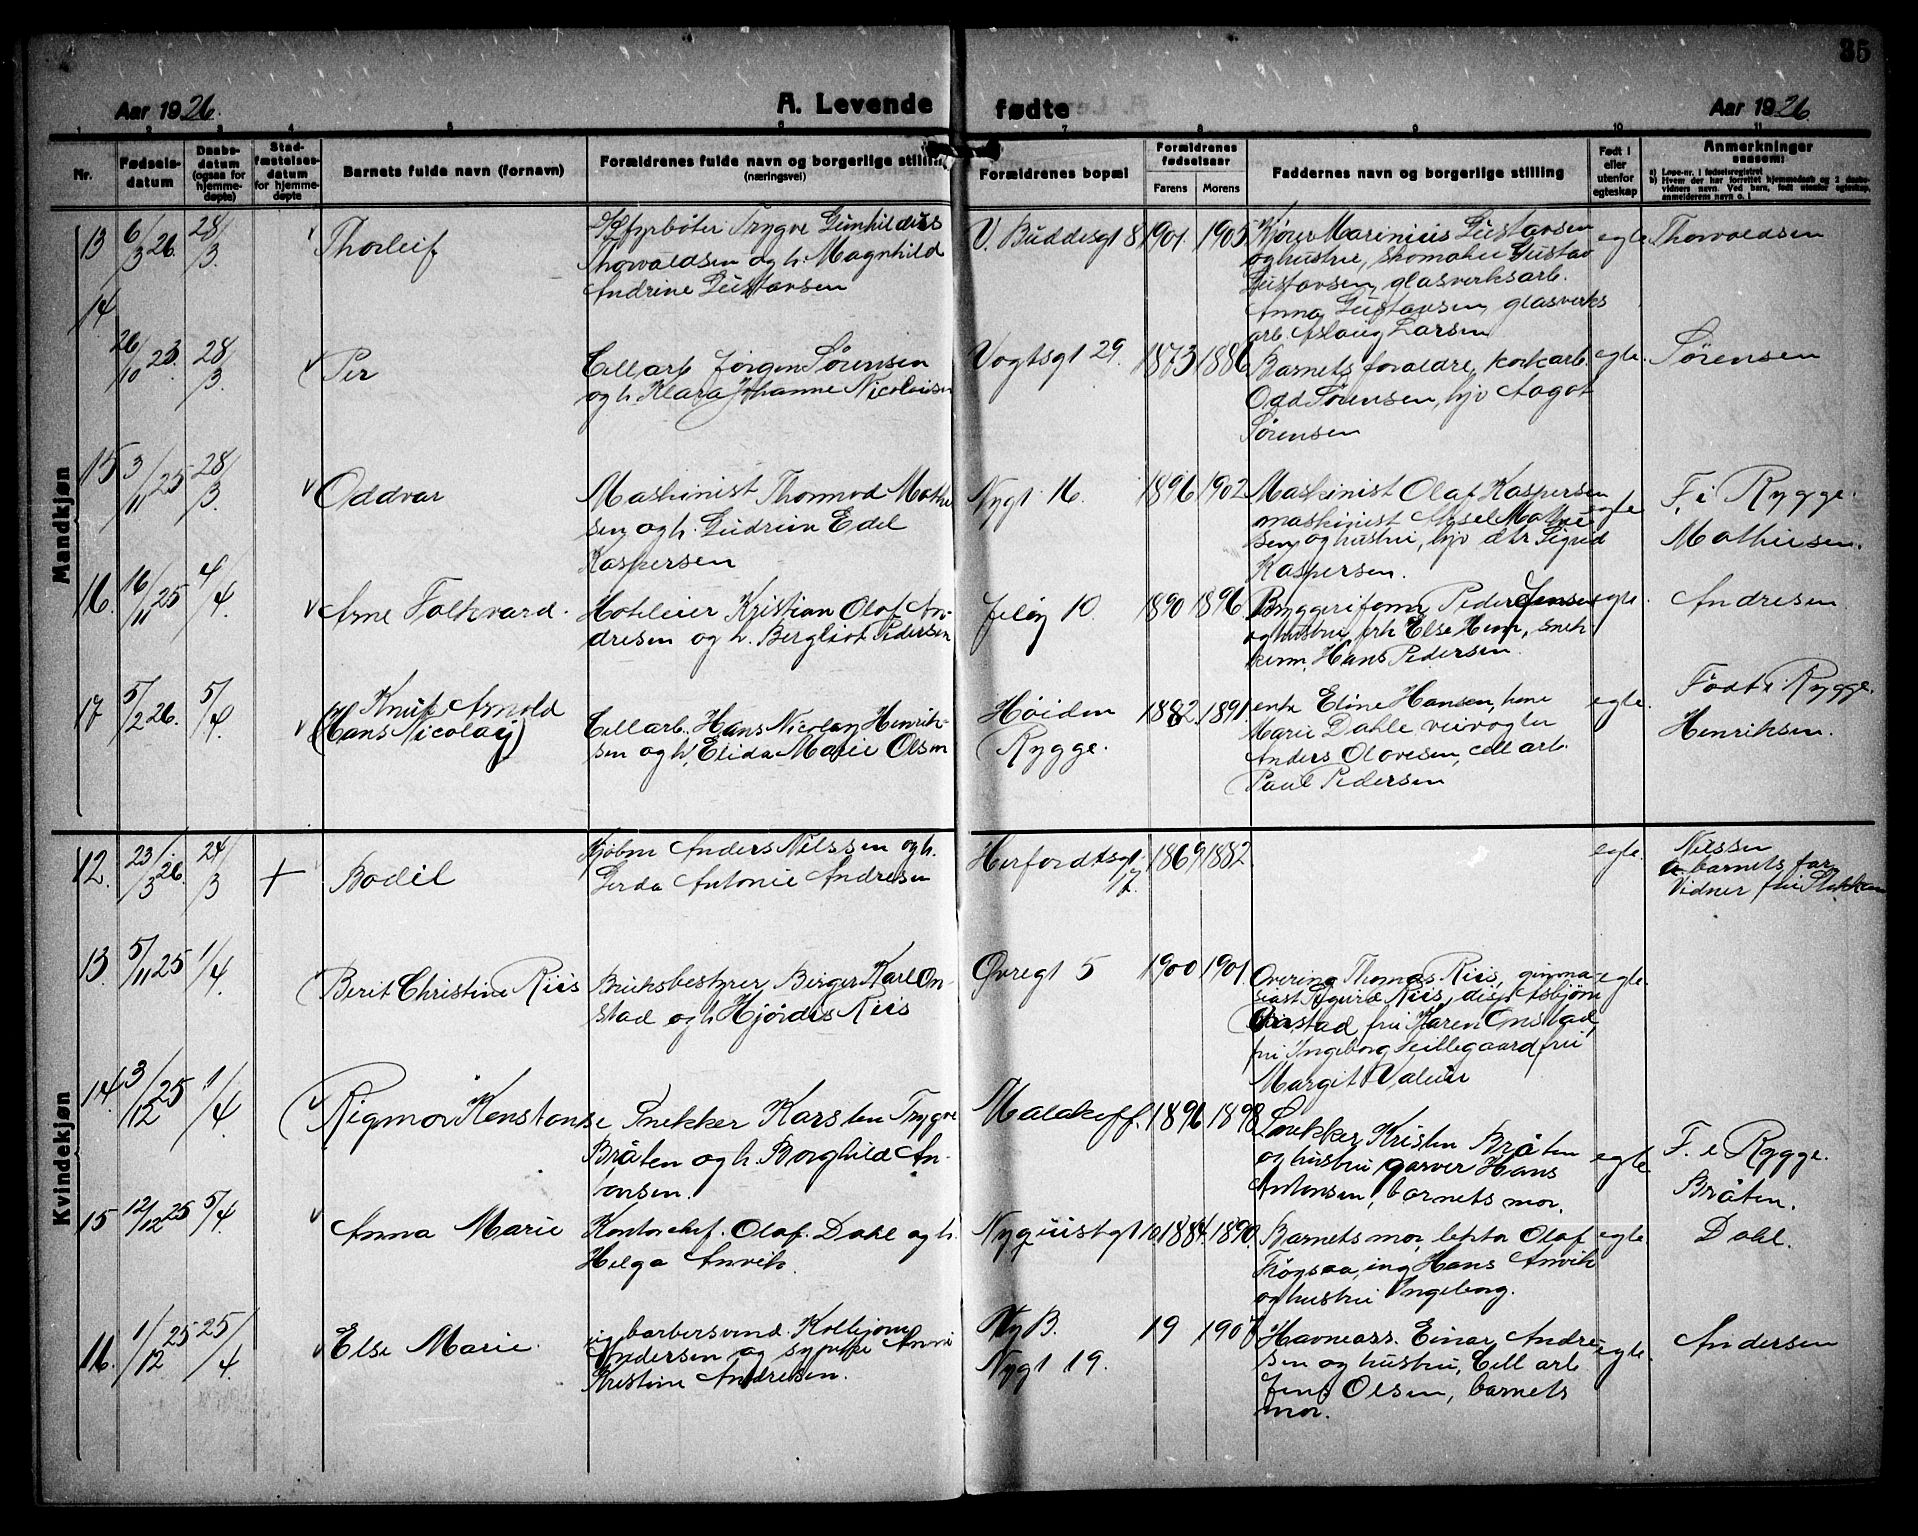 35
Aar 1926.
A. Levende
fødte
Aar 1926
1 2 3 4 5 6 7 8 9 10 11
Nr.
Fødsels-
datum
Daabs-
datum
(ogsaa for
hjemme-
døpte)
Stad-
fæstelses-
datum
for hjemme-
døpte
Barnets fulde navn (fornavn)
Forældrenes fulde navn og borgerlige stilling
(næringsvei)
Forældrenes bopæl
Forældrenes
fødselsaar
Farens Morens
Faddernes navn og borgerlige stilling
Født i
eller
utenfor
egteskap
Anmerkninger
saasom:
a) Løpe-nr. i fødselsregistret
b) Hvem der har forrettet hjemmedaab og 2 daabs-
vidners navn. Ved barn, født utenfor egteskap,
anmelderens navn o. l.
Mandkjøn
13 6/3 26. 28/3 Thorleif
fyrbøter Trygve Gunhildius
Thorvaldsen og h. Magnhild
Andrine Gustavsen
V. Buddesgt 8 1901. 1905
Kjører Marinius Gustavsen
og hustru, skomaker Gustav
Gustavsen, glasverksarb.
Anna Gustavsen, glasverks
arb. Aslaug Larsen
egte Thorvaldsen
14 26/10 23. 28/3 Per
Cellarb Jørgen Sørensen
og h. Klara Johanne Nicolaisen
Vogtsgt 29. 1873 1886
Barnets forældre, korkarb.
Odd Sørensen, hjv Aagot
Sørensen
egte. Sørensen
15 3/11 25 28/3 Oddvar
Maskinist Thormod Mathi
sen og h. Gudrun Edel
Kaspersen
Nygt 16. 1896 1902
Maskinist Olaf Kaspersen
maskinist Aksel Mathi
sen og hustru, hjv dtr Sigrid
Kaspersen.
egte
F. i Rygge.
Mathisen.
16. 16/11 25 4/4 Arne Folkvard.
Hotleier Kristian Olaf An-
dresen og h. Bergliot Pedersen
Jeløy 10. 1890 1896
Byggerifom. Peder Jensen
og hustru, frk Else Hem, snek
kerm. Hans Pedersen.
egte. Andresen
17 5/2 26. 5/4
Knut Arnold
(Hans Nicolay)
Cellarb. Hans Nicolay Henrik-
sen og h. Elida Marie Olsen
Høiden
Rygge.
1882. 1891.
enke Eline Hansen, hene
Marie Dahle veivogter
Anders Olavesen, cell arb.
Paul Pedersen
egte.
Født i Rygge.
Henriksen.
Kvindekjøn
12. 23/3 26. 24/3 + Bodil
Kjøbm Anders Nilssen og h.
Gerda Antonie Andresen
Herfordtsgt. 1869 1882
egte.
Nilssen
barnets far
Vidner fru
13. 5/11 25 1/4 Berit Christine Riis
Bruksbestyrer Birger Karl On-
stad og h Hjørdis Riis
Øvregt 5 1900 1901.
Overing Thomas Riis, gymna-
siast Sigurd Riis, disp Asbjørn
Onstad, fru Karen Onstad,
fru Ingeborg Lillegaard fru
Margit Valeur
egte.
14. 3/12 25 1/4 Rigmor Konstanse
Snekker Karsten Trygve
Bråten og h. Borghild An-
tonsen.
Malakoff. 1896 1898
Snekker Kristen Bråten
og hustru garver Hans
Antonsen, barnets mor.
egte
F. i Rygge.
Bråten.
15 12/12 25 5/4 Anna Marie
Kontorchef. Olaf. Dahl og h.
Helga Anvik.
Nyquistgt 10 1884. 1890.
Barnets mor, lektor Olaf
Trögsaa, ing Hans Anvik
og hustru Ingeborg.
egte. Dahl.
16. 1/12 25 25/4 Else Marie.
ug barbersvend Kolbjørn
Andersen og sypike Anne
Kristine Andresen.
Ny B.
Nygt 19.
19 1907
Havneass. Einar Andre
sen og hustru, Cell arb
Jens Olsen, barnets
mor.
egte. Andersen